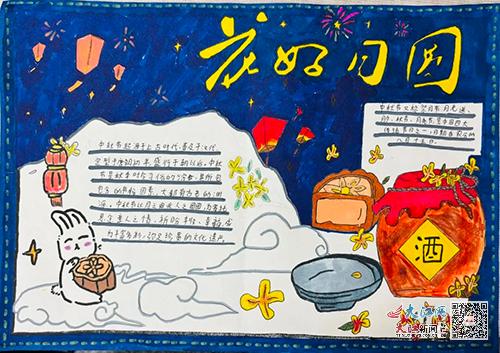 花好月圆
中秋节又称贺月节、月光诞、
月夕、秋节、月亮节,是中国四大
传统节日之一,日期在农历的
八月十五日。
中秋节起源于上古时代,普及于汉代,
定型于唐朝初年,盛行于宋朝以后。中秋
节是秋季时令习俗的综合,其所包
含的节俗因素,大都有古老的渊
源。中秋节以月之圆兆人之团圆,为寄托
思念亲人之情,祈盼丰收、幸福,成
为丰富多彩、弥足珍贵的文化遗产。
酒
大江网
大江新闻